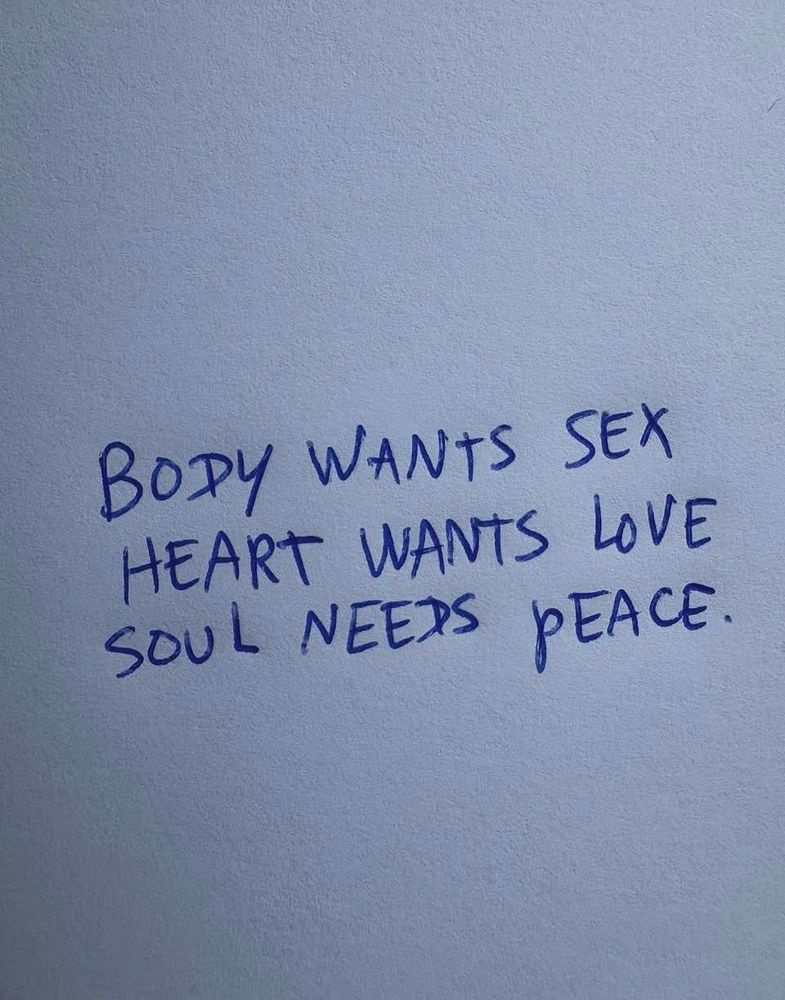 BODY WANTS SEX
HEART WANTS LOVE
SOUL NEEDS PEACE.